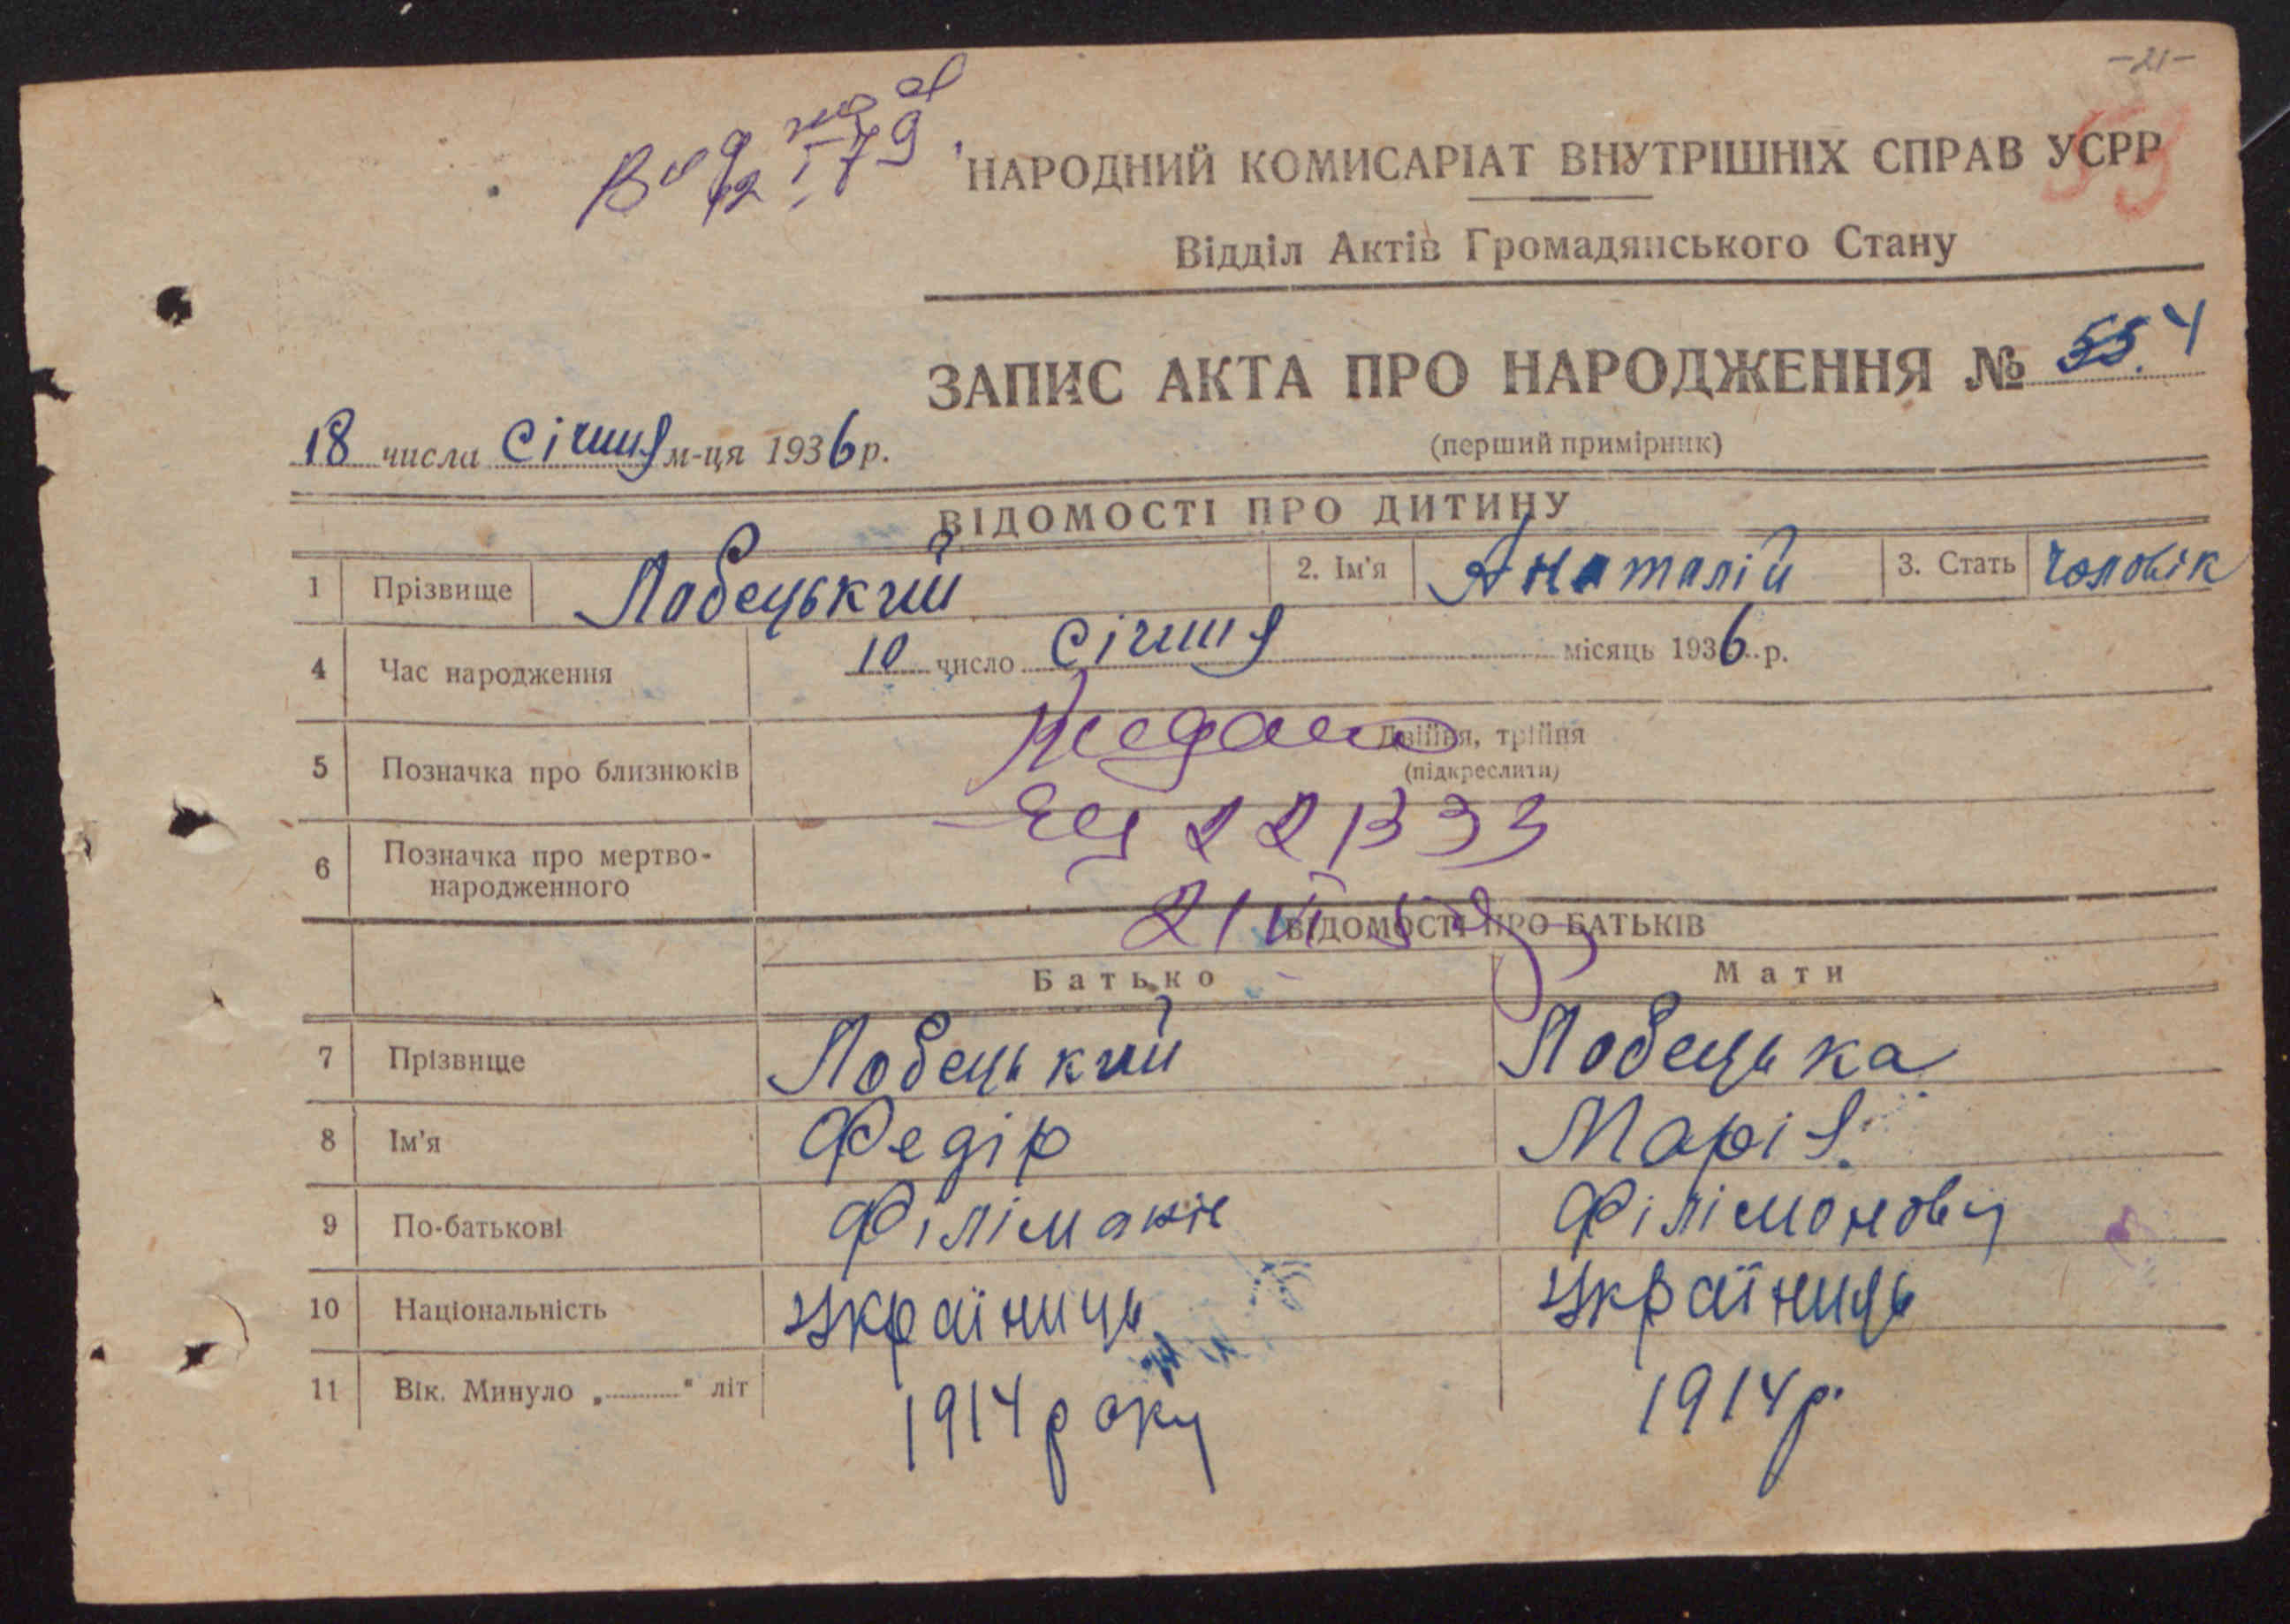 -21-
53
НАРОДНИЙ КОМИСАРІАТ ВНУТРІШНІХ СПРАВ УСРР
Відділ Актів Громадянського Стану
ЗАПИС АКТА ПРО НАРОДЖЕННЯ № 55. 4
18 числа Січня м-ця 1936 р.
(перший примірник)
ВІДОМОСТІ ПРО ДИТИНУ
1 Прізвище Лобецький 2. Ім'я Анатолій 3. Стать Чоловік
4 Час народження 10 число Січня місяць 1936 р.
5 Позначка про близнюків Двійня, трійня
(підкреслити)
22 1333
6 Позначка про мертво-
народженного
21 VI
ВІДОМОСТІ ПРО БАТЬКІВ
Батько Мати
7 Прізвище Лобецький Лобецька
8 Ім'я Федір Марія
9 По-батькові Філімонів Філімонову
10 Національність Українець Українець
11 Вік. Минуло „ “ літ 1914 року 1914 р.